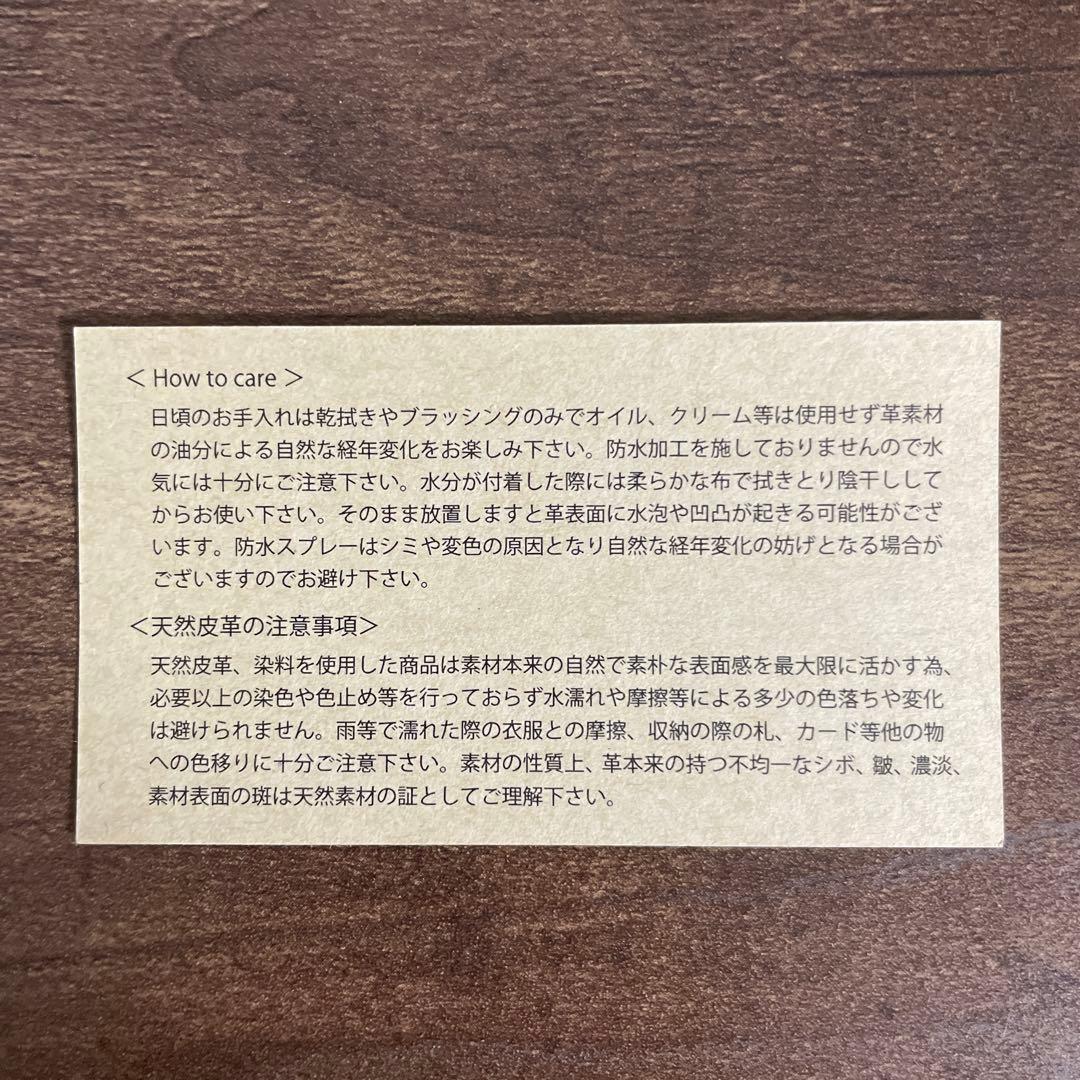 ＜ How to care ＞
日頃のお手入れは乾拭きやブラッシングのみでオイル、クリーム等は使用せず革素材
の油分による自然な経年変化をお楽しみ下さい。防水加工を施しておりませんので水
気には十分にご注意下さい。水分が付着した際には柔らかな布で拭きとり陰干しして
からお使い下さい。そのまま放置しますと革表面に水泡や凹凸が起きる可能性がござ
います。防水スプレーはシミや変色の原因となり自然な経年変化の妨げとなる場合が
ございますのでお避け下さい。
＜天然皮革の注意事項＞
天然皮革、染料を使用した商品は素材本来の自然で素朴な表面感を最大限に活かす為、
必要以上の染色や色止め等を行っておらず水濡れや摩擦等による多少の色落ちや変化
は避けられません。雨等で濡れた際の衣服との摩擦、収納の際の札、カード等他の物
への色移りに十分ご注意下さい。素材の性質上、革本来の持つ不均一なシボ、皺、濃淡、
素材表面の斑は天然素材の証としてご理解下さい。